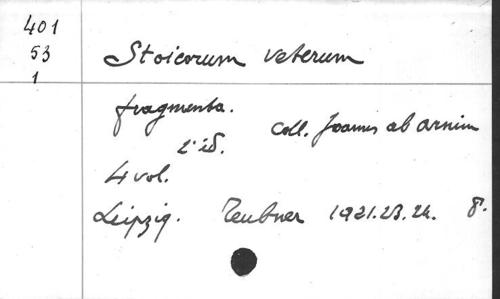 401
53
1
Stoicorum veterum
fragmenta.
coll. Joannes ab Arnim
2ª id.
4 vol.
Leipzig. Teubner 1921.23.24. 8°.